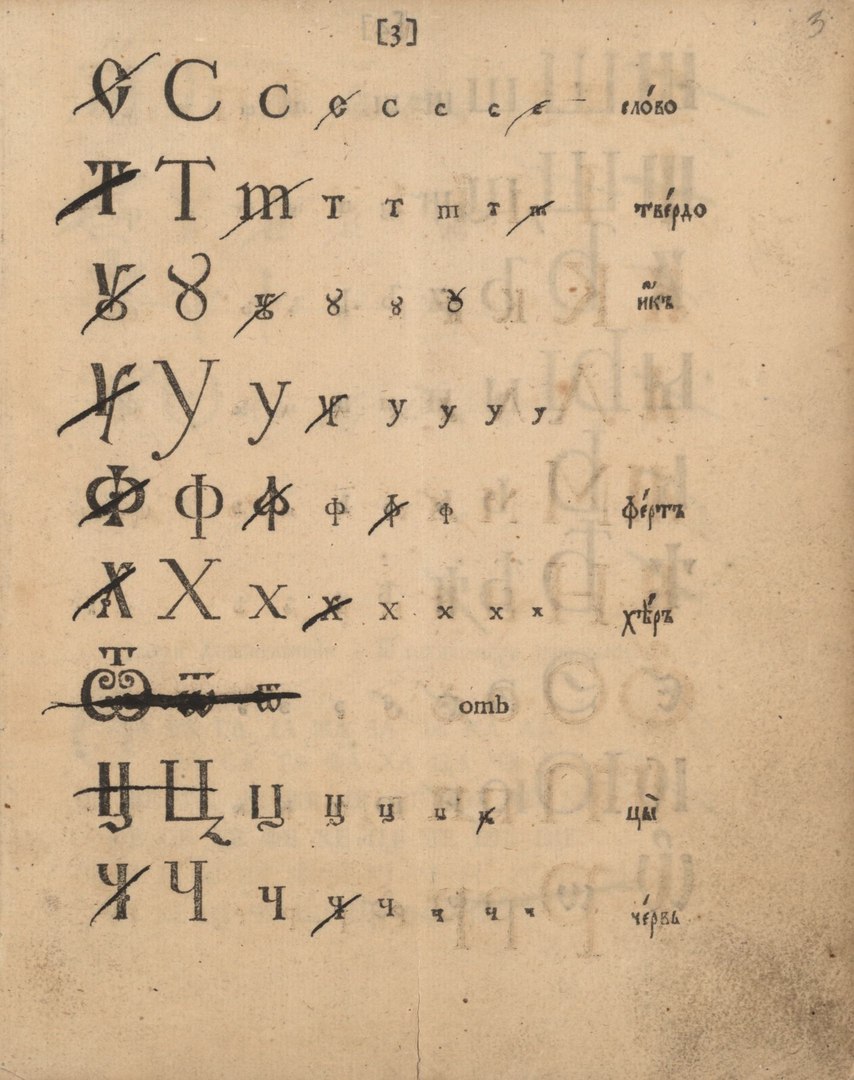 [3] 3
Є С С є с с с є сло́во
Т Т т т т т т т тве́рдо
Ꙋ Ꙋ ꙋ ꙋ ꙋ ꙋ и҆́къ
У У у у у у у у
Ф Ф ф ф ф ф фе́ртъ
Х Х х х х х х х хѣ́ръ
Ѿ ѿ ѿ отъ
Ц Ц ц ц ц ц ц цы̀
Ч Ч ч ч ч ч ч ч че́рвь